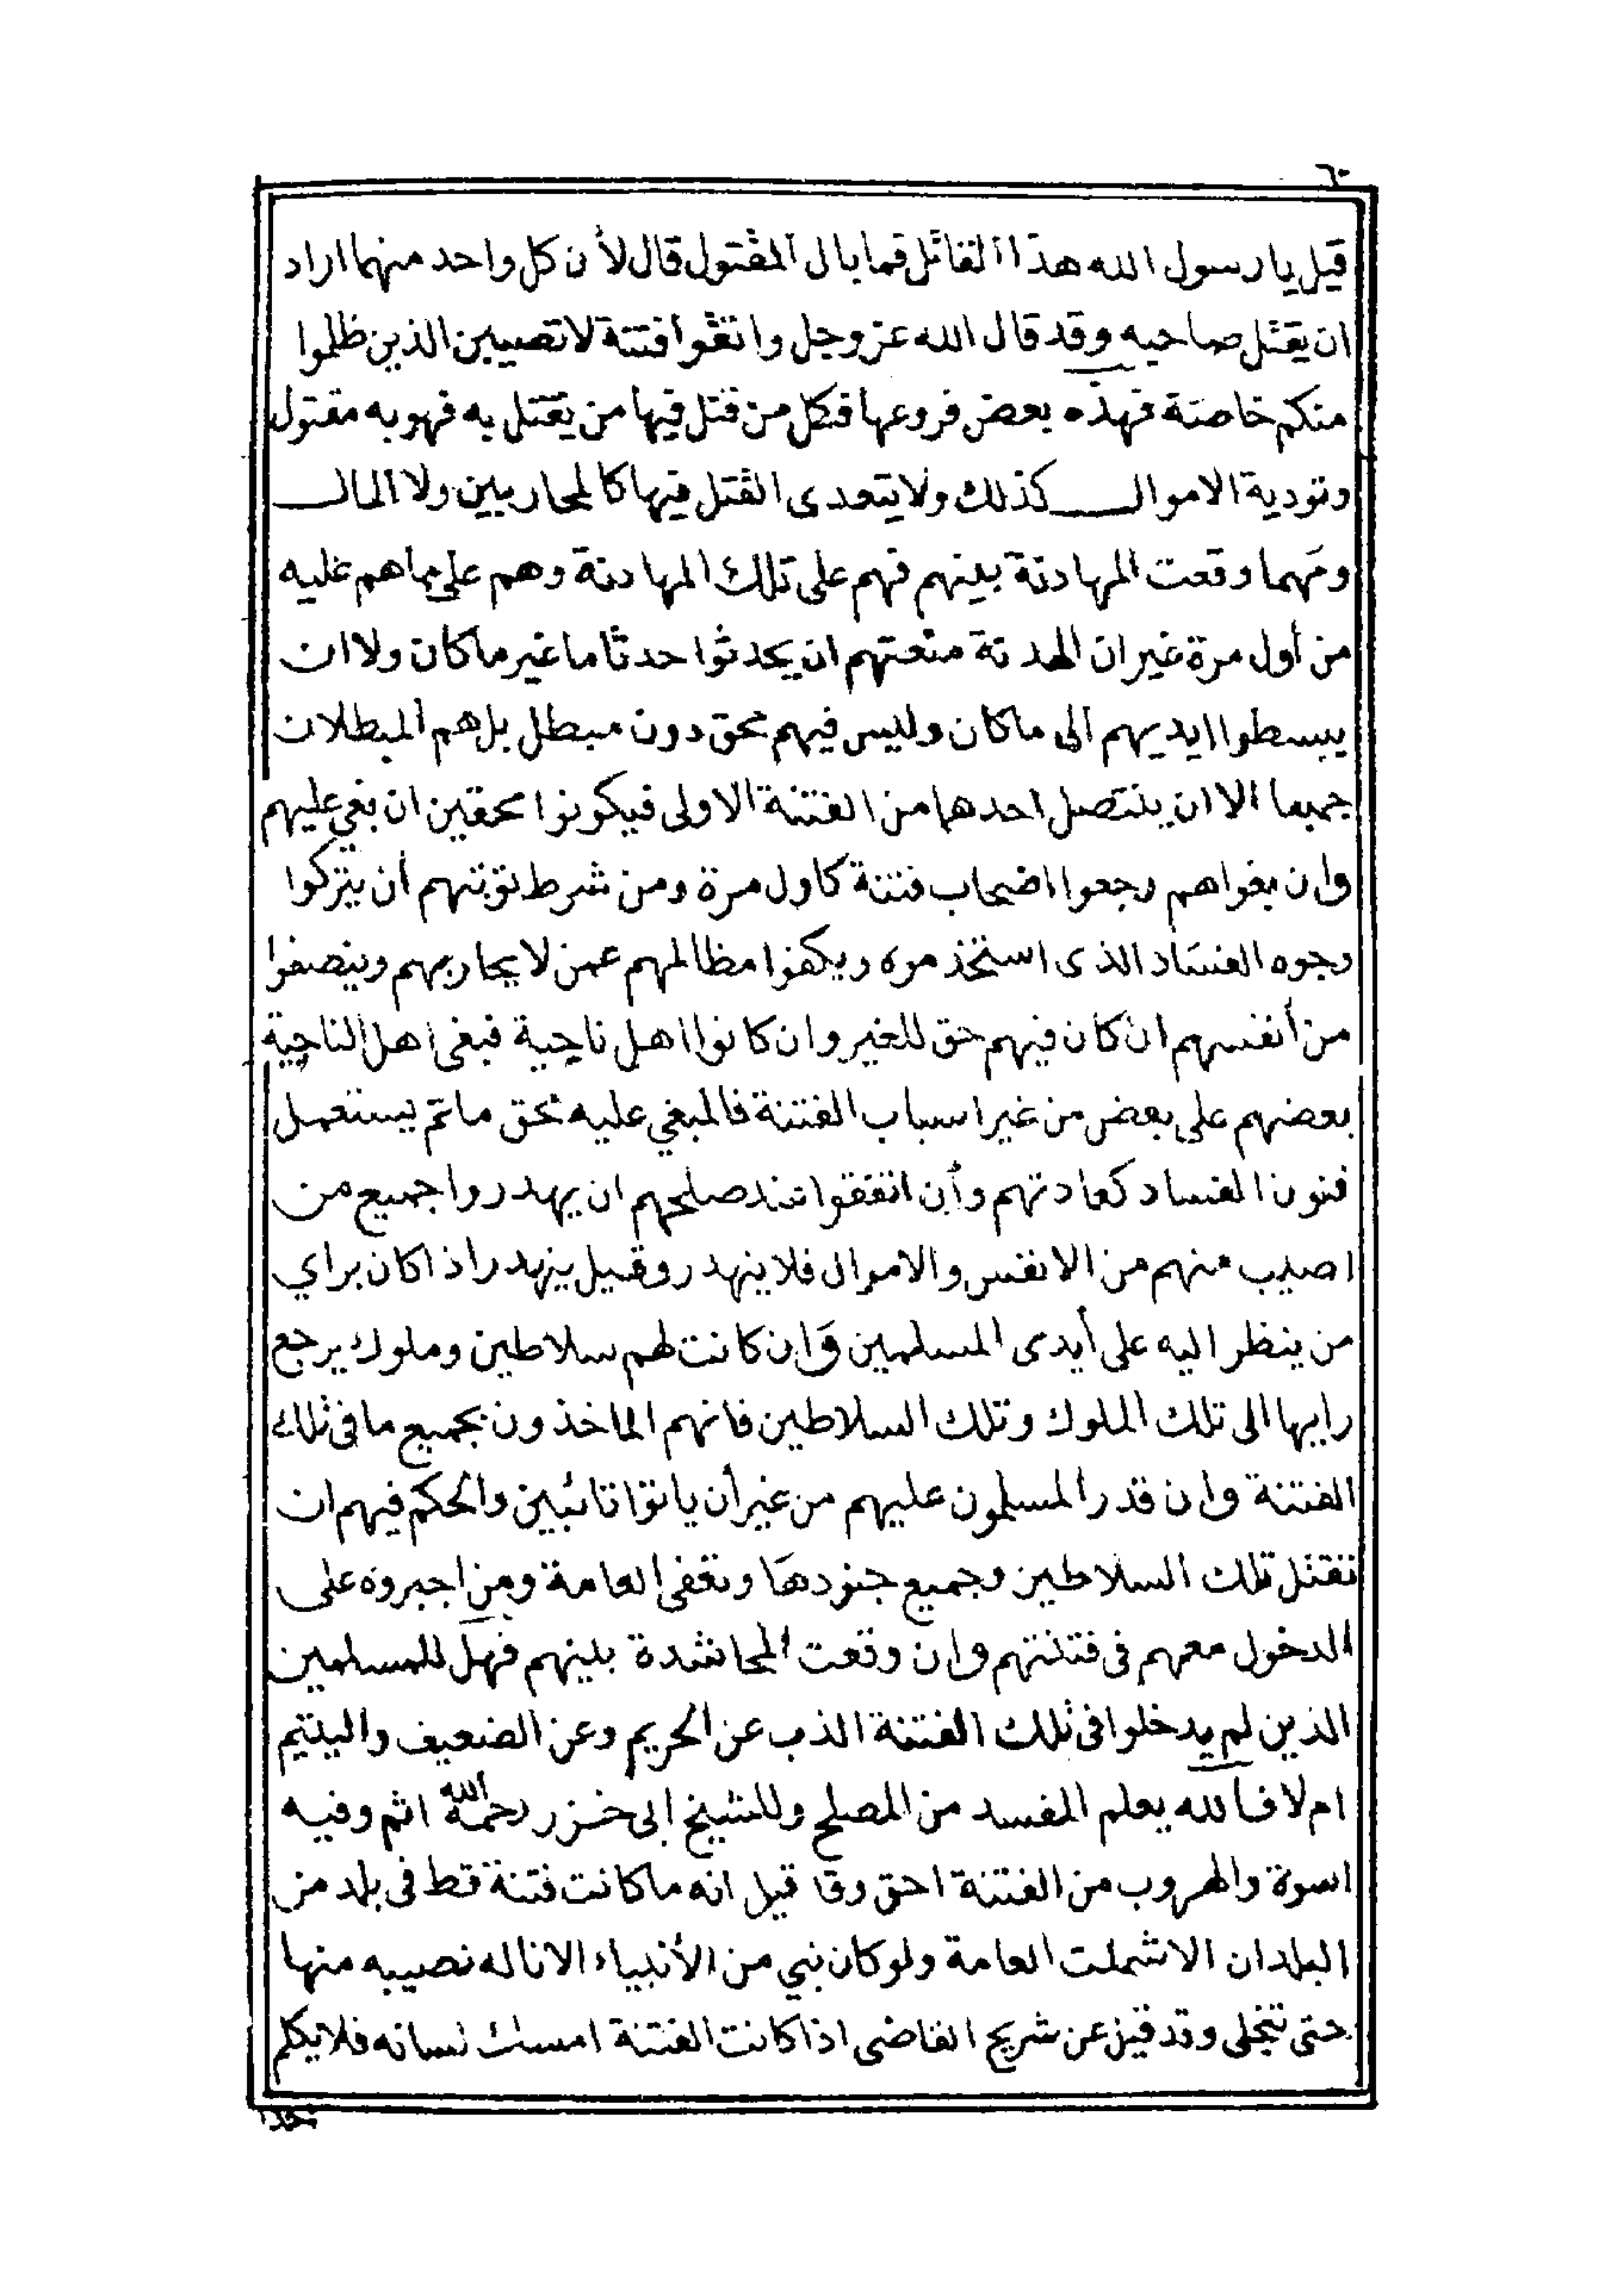 ٦٠
قيل يا رسول الله هذا القاتل فما بال المقتول قال لأن كل واحد منهما اراد
ان يقتل صاحبه وقد قال الله عز وجل واتقوا فتنة لا تصيبن الذين ظلموا
منكم خاصة فهذه بعض فروعها فكل من قتل فيها من يقتل به فهو به مقتول
وتودية الاموال كذلك ولا يتعدى القتل فيها كالمحاربين ولا المال
ومهما وقعت المهادنة بينهم فهم على تلك المهادنة وهم على ما هم عليه
من أول مرة غير ان الهدنة منعتهم ان يحدثوا حدثا ما غير ما كان ولا ان
يبسطوا ايديهم الى ما كان وليس فيهم محق دون مبطل بل هم المبطلان
جميعا الا ان ينتصل احدهما من الفتنة الاولى فيكونوا محقين ان بغي عليهم
وان بغوا هم رجعوا اضحاب فتنة كاول مرة ومن شرط توبتهم أن يتركوا
وجوه الفساد الذى استخذموه ويكفوا مظالمهم عمن لا يحاربهم وينصفوا
من أنفسهم ان كان فيهم حق للغير وان كانوا اهل ناحية فبغى اهل الناحية
بعضهم على بعض من غير اسباب الفتنة فالمبغي عليه محق ما تم يستعمل
فنون الفساد كعادتهم وأن اتفقوا عند صلحهم ان يهدروا جميع من
اصيب منهم من الانفس والاموال فلا ينهدر وقيل ينهدر اذا كان براي
من ينظر اليه على أيدى المسلمين وان كانت لهم سلاطين وملوك يرجع
رايها الى تلك الملوك وتلك السلاطين فانهم الماخذون بجميع ما في تلك
الفتنة وان قدر المسلمون عليهم من غير أن ياتوا تائبين والحكم فيهم ان
تقتل تلك السلاطين وجميع جنودها وتعفى العامة ومن اجبروه على
الدخول معهم فى فتنتهم وان وقعت المحاشدة بينهم فهل للمسلمين
الذين لم يدخلوا فى تلك الفتنة الذب عن الحريم وعن الضعيف واليتيم
ام لا فالله يعلم المفسد من المصلح وللشيخ ابى خزر رحمه الله اثم وفيه
اسوة والهروب من الفتنة احق وقا قيل انه ما كانت فتنة قط فى بلد من
البلدان الا شملت العامة ولو كان نبي من الأنبياء الا ناله نصيبه منها
حتى تنجلى وقد قيل عن شريح القاضى اذا كانت الفتنة امسك لسانه فلا يكلم